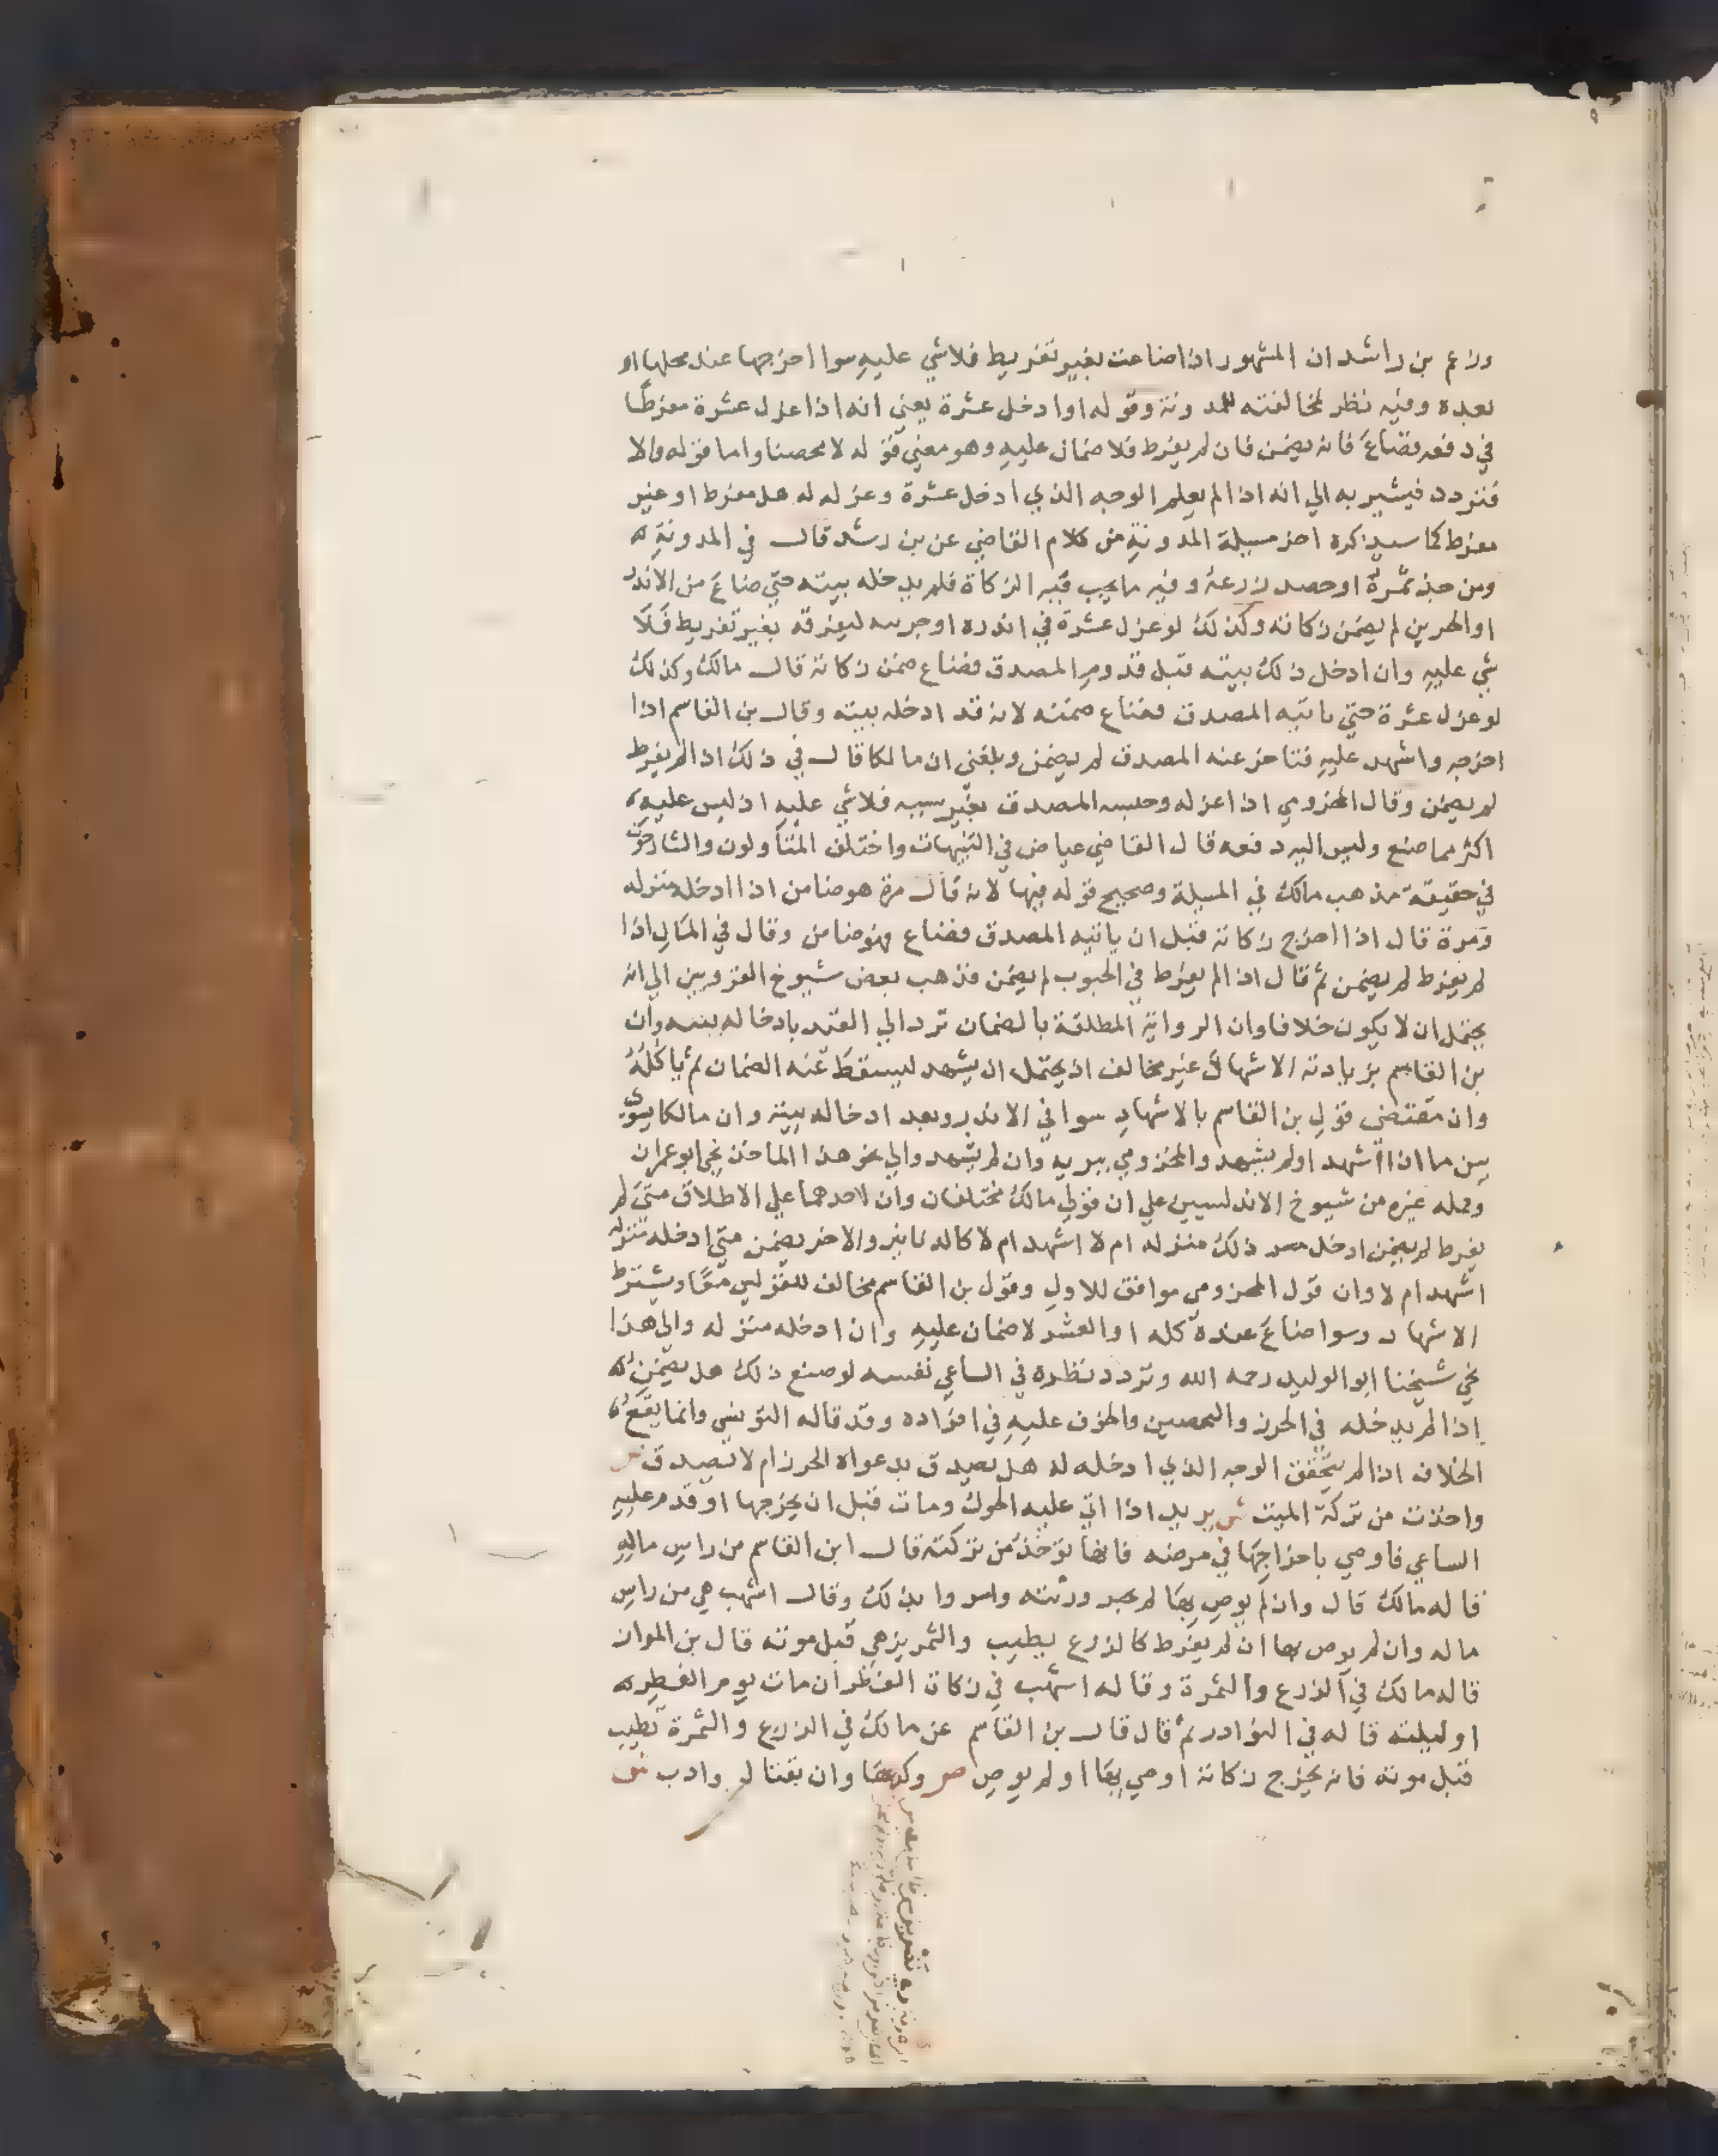 وزعم بن راشد ان المشهور اذا ضاعت بغير تفريط فلا شي عليه سوا اخرجها عند محلها او
بعده وفيه نظر لمخالفته للمدونة وقوله او ادخل عشرة يعني انه اذا عزل عشرة مفرطا
في دفعه فضاع فانه يضمن فان لم يفرط فلا ضمان عليه وهو معني قوله لا محصنا واما قوله والا
فتردد فيشير به الي انه اذا لم يعلم الوجه الذي ادخل عشرة وعزله له هل مفرط او غير
مفرط كما سيذكره اخر مسيلة المدونة من كلام القاضي عن بن رشد قال في المدونة
ومن جذ ثمرة او حصد زرعه وفيه ما يجب فيه الزكاة فلم يدخله بيته حتي ضاع من الاندر
او الجرين لم يضمن زكاته وكذلك لو عزل عشرة في اندره او جرينه ليفرقه بغير تفريط فلا
شي عليه وان ادخل ذلك بيته قبل قدوم المصدق فضاع ضمن زكاته قال مالك وكذلك
لو عزل عشرة حتي ياتيه المصدق فضاع ضمنه لانه قد ادخله بيته وقال بن القاسم اذا
اخرجه واشهد عليه فتاخر عنه المصدق لم يضمن وبلغني ان مالكا قال في ذلك اذا لم يفرط
لم يضمن وقال المخزومي اذا عزله وحبسه المصدق بغير سببه فلا شي عليه اذ ليس عليه
اكثر مما صنع وليس اليه دفعه قال القاضي عياض في التنبيهات واختلف المتأولون والشارحون
في حقيقة مذهب مالك في المسيلة وصحيح قوله فيها لانه قال مرة هو ضامن اذا ادخله منزله
ومرة قال اذا اخرج زكاته قبل ان ياتيه المصدق فضاع فهو ضامن وقال في المال اذا
لم يفرط لم يضمن ثم قال اذا لم يفرط في الحبوب لم يضمن فذهب بعض شيوخ القرويين الي انه
يحتمل ان لا يكون خلافا وان الرواية المطلقة بالضمان ترد الي المقيد بادخاله بيته وان
بن القاسم بزيادته الاشهاد غير مخالف اذ يحتمل ان يشهد ليسقط عنه الضمان ثم ياكله
وان مقتضي قول بن القاسم بالاشهاد سوا في الاندر وبعد ادخاله بيته وان مالكا يسوي
بين ما اذا اشهد او لم يشهد والمخزومي يبريه وان لم يشهد والي نحو هذا الماخذ نحي ابو عمران
وحمله غيره من شيوخ الاندلسيين علي ان قولي مالك مختلفان وان لاحدهما علي الاطلاق متي لم
يفرط لم يضمن ادخل ذلك منزله ام لا اشهد ام لا والاخر يضمن متي ادخله منزله
اشهد ام لا وان قول المخزومي موافق للاول وقول بن القاسم مخالف للقولين معا ويشترط
الاشهاد وسوا ضاع عنده كله او العشر لا ضمان عليه وان ادخله منزله والي هذا
نحي شيخنا ابو الوليد رحمه الله وتردد نظره في الساعي نفسه لو صنع ذلك هل يضمن
اذا لم يدخله في الحرز والتحصين والخوف عليه في افراده وقد قاله التونسي وانما يقع
الخلاف اذا لم يتحقق الوجه الذي ادخله له هل يصدق بدعواه الحرز ام لا يصدق ص
واخذت من تركة الميت ش يريد اذا اتي عليه الحول ومات قبل ان يخرجها او قدم عليه
الساعي فاوصي باخراجها في مرضه فانها تؤخذ من تركته قال ابن القاسم من راس ماله
قاله مالك قال وان لم يوص بها لم يجبر ورثته وامروا بذلك وقال اشهب هي من راس
ماله وان لم يوص بها ان لم يفرط كالزرع يطيب والثمر يزهي قبل موته قال بن المواز
قاله مالك في الزرع والثمرة وقاله اشهب في زكاة الفطر ان مات يوم الفطر
او ليلته قاله في النوادر ثم قال قال بن القاسم عن مالك في الزرع والثمرة تطيب
قبل موته فانه يخرج زكاته اوصي بها او لم يوص ص وكرها وان بقتال وادب ش